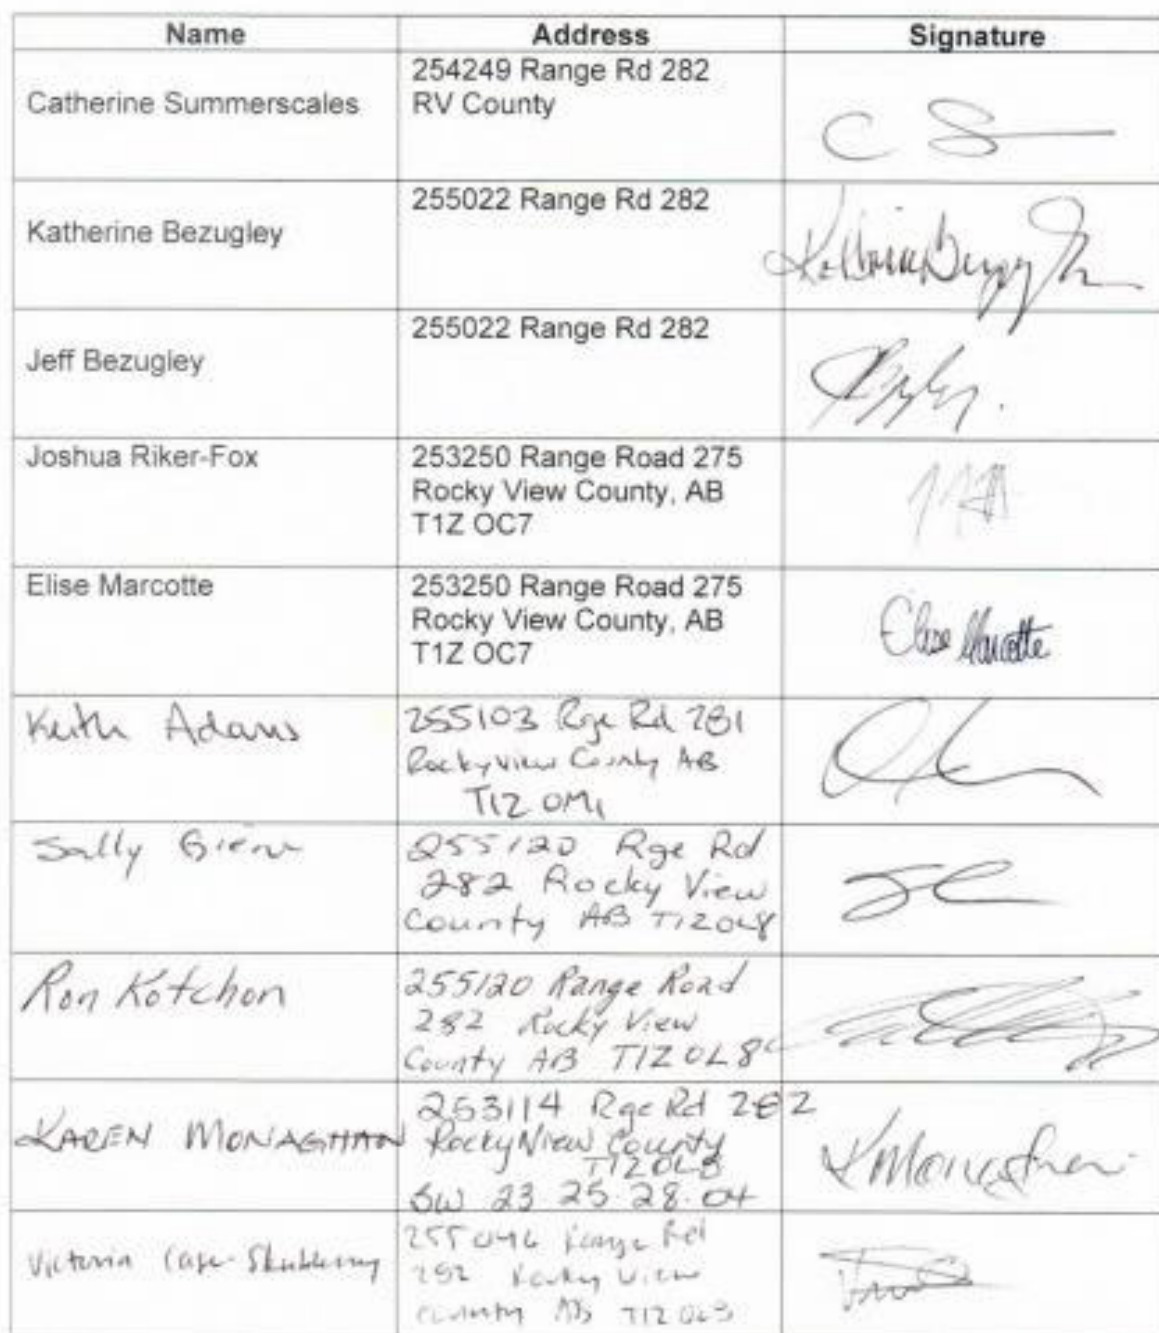 Name Address Signature
Catherine Summerscales
254249 Range Rd 282
RV County
C S
Katherine Bezugley
255022 Range Rd 282
Jeff Bezugley
255022 Range Rd 282
Joshua Riker-Fox
253250 Range Road 275
Rocky View County, AB
T1Z OC7
Elise Marcotte
253250 Range Road 275
Rocky View County, AB
T1Z OC7
Elise Marcotte
Keith Adams
255103 Rge Rd 281
Rockyview County AB
T1Z 0M1
Sally
255120 Rge Rd
282 Rocky View
County AB T1Z0L8
Ron Kotchon
255120 Range Road
282 Rocky View
County AB T1Z 0L8
KAREN MONAGHAN
253114 Rge Rd 282
Rocky View County
T1Z0L8
SW 23 25 28.04
K Monaghan
Victoria
Range Rd
282 Rocky View
County AB T1Z